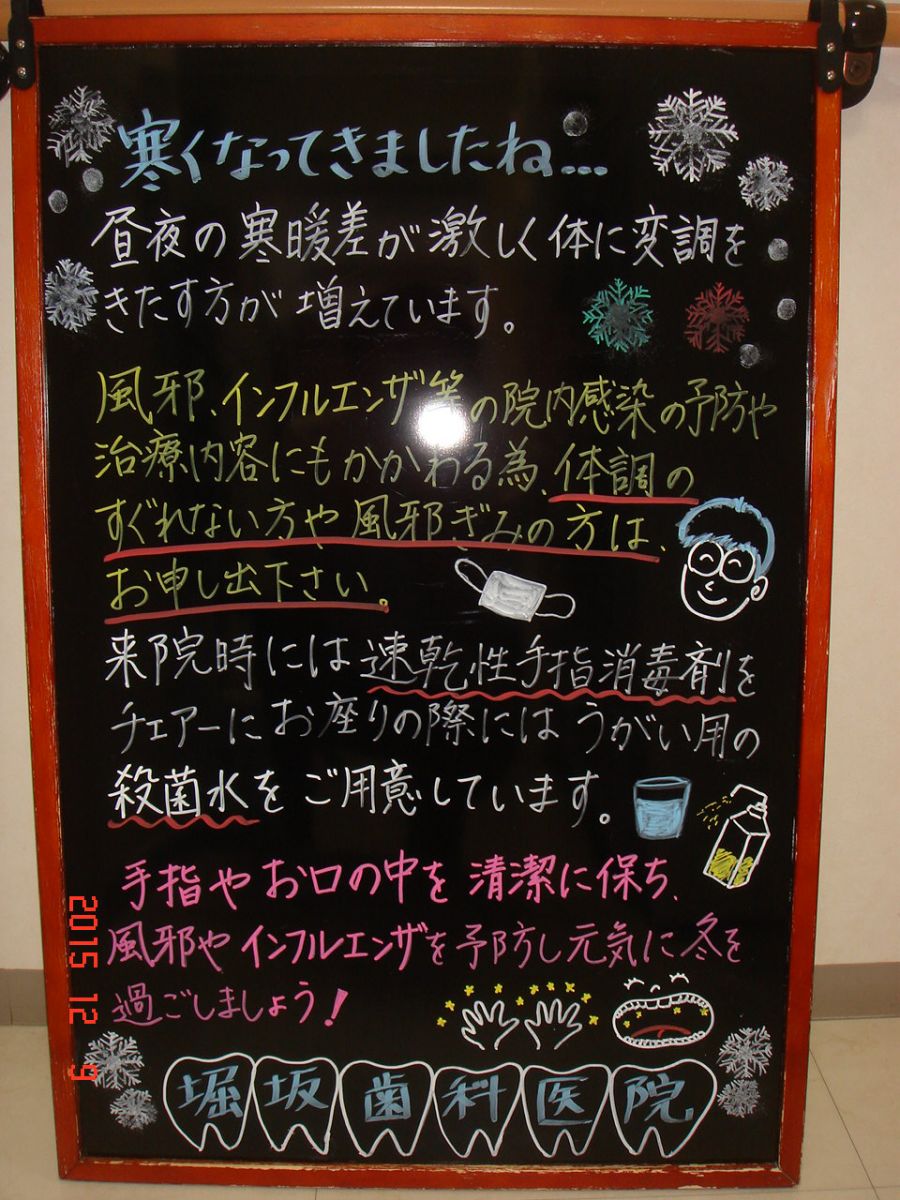 寒くなってきましたね…
昼夜の寒暖差が激しく体に変調を
きたす方が増えています。
風邪、インフルエンザ等の院内感染の予防や
治療内容にもかかわる為、体調の
すぐれない方や風邪ぎみの方は、
お申し出下さい。
来院時には速乾性手指消毒剤を
チェアーにお座りの際にはうがい用の
殺菌水をご用意しています。
手指やお口の中を清潔に保ち、
風邪やインフルエンザを予防し元気に冬を
過ごしましょう!
堀坂歯科医院
2015 12 9